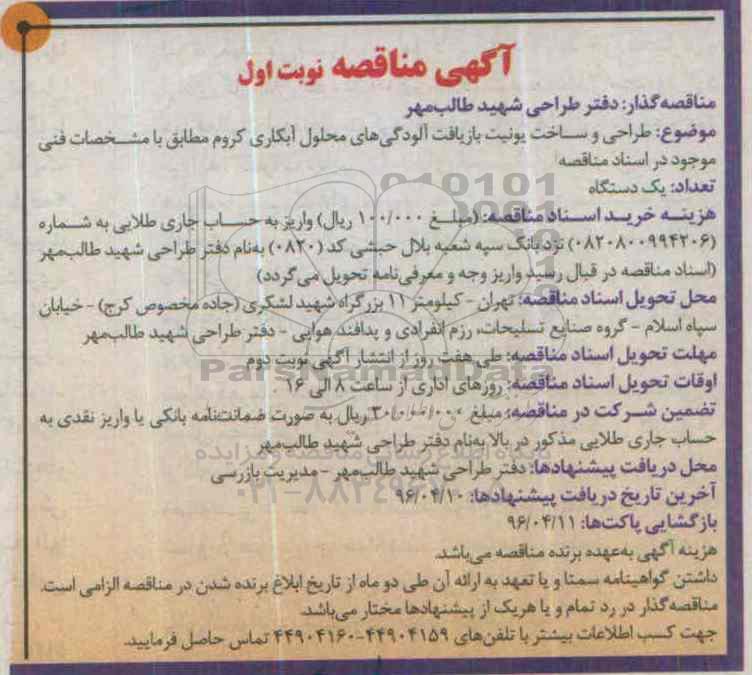 آگهی مناقصه نوبت اول
مناقصه‌گذار: دفتر طراحی شهید طالب‌مهر
موضوع: طراحی و ساخت یونیت بازیافت آلودگی‌های محلول آبکاری کروم مطابق با مشخصات فنی
موجود در اسناد مناقصه
تعداد: یک دستگاه
هزینه خرید اسناد مناقصه: (مبلغ ۱۰۰/۰۰۰ ریال) واریز به حساب جاری طلایی به شماره
(۰۸۲۰۸۰۰۹۹۴۲۰۶) نزد بانک سپه شعبه بلال حبشی کد (۰۸۲۰) به‌نام دفتر طراحی شهید طالب‌مهر
(اسناد مناقصه در قبال رسید واریز وجه و معرفی‌نامه تحویل می‌گردد)
محل تحویل اسناد مناقصه: تهران - کیلومتر ۱۱ بزرگراه شهید لشکری (جاده مخصوص کرج) - خیابان
سپاه اسلام - گروه صنایع تسلیحات، رزم انفرادی و پدافند هوایی - دفتر طراحی شهید طالب‌مهر
مهلت تحویل اسناد مناقصه: طی هفت روز از انتشار آگهی نوبت دوم
اوقات تحویل اسناد مناقصه: روزهای اداری از ساعت ۸ الی ۱۶
تضمین شرکت در مناقصه: مبلغ ریال به صورت ضمانت‌نامه بانکی یا واریز نقدی به
حساب جاری طلایی مذکور در بالا به‌نام دفتر طراحی شهید طالب‌مهر
محل دریافت پیشنهادها: دفتر طراحی شهید طالب‌مهر - مدیریت بازرسی
آخرین تاریخ دریافت پیشنهادها: ۹۶/۰۴/۱۰
بازگشایی پاکت‌ها: ۹۶/۰۴/۱۱
هزینه آگهی به‌عهده برنده مناقصه می‌باشد.
داشتن گواهینامه سمتا و یا تعهد به ارائه آن طی دو ماه از تاریخ ابلاغ برنده شدن در مناقصه الزامی است.
مناقصه‌گذار در رد تمام و یا هریک از پیشنهادها مختار می‌باشد.
جهت کسب اطلاعات بیشتر با تلفن‌های ۴۴۹۰۴۱۵۹-۴۴۹۰۴۱۶۰ تماس حاصل فرمایید.
ParsNamadData
پایگاه اطلاع رسانی مناقصه و مزایده